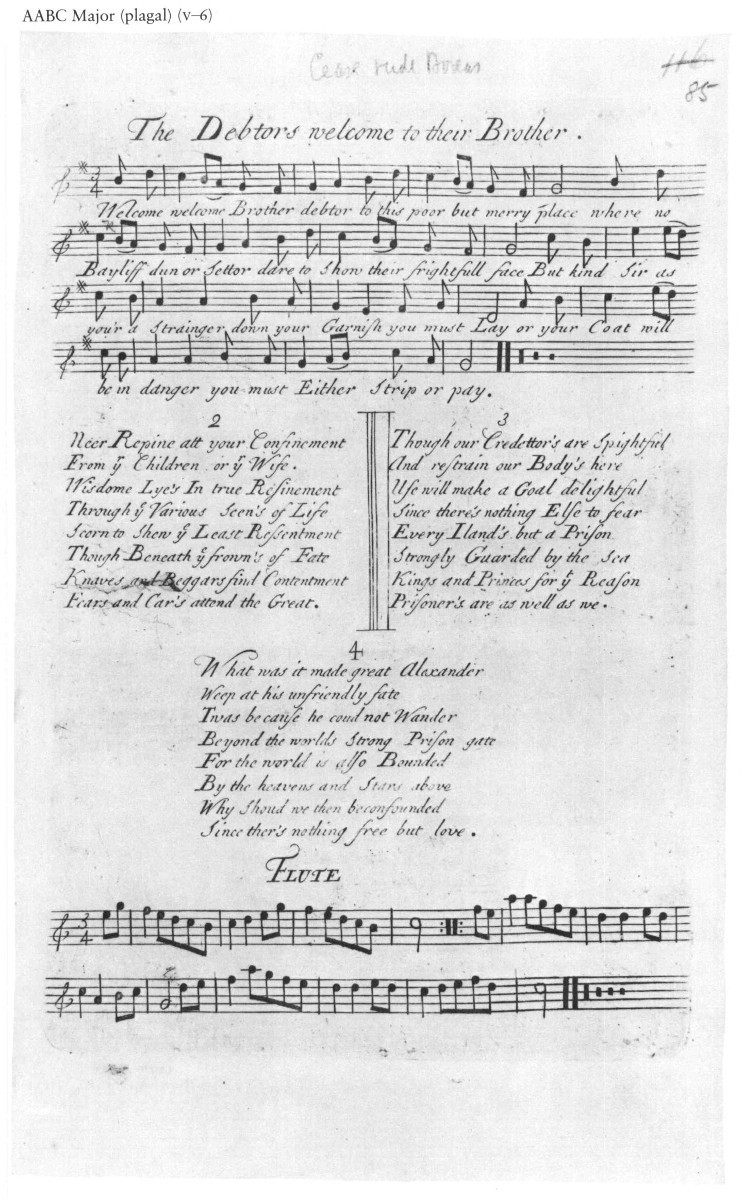 AABC Major (plagal) (V–6)
Cease rude Boreas
116
85
The Debtors welcome to their Brother .
Welcome welcome Brother debtor to this poor but merry place where no
Bayliff dun or Settor dare to Show their frightfull face But kind Sir as
your'a Strainger down your Garnish you must Lay or your Coat will
be in danger you must Either Strip or pay.
2
Neer Repine att your Confinement
From yͤ Children or yͤ Wife .
Wisdome Lye's In true Refinement
Through yͤ Various Seen's of Life
Scorn to Shew yͤ Least Ressentment
Though Beneath yͤ frown's of Fate
Knaves and Beggars find Contentment
Fears and Car's attend the Great .
3
Though our Credettor's are Spightful
And restrain our Body's here
Use will make a Goal delightful
Since there's nothing Else to fear
Every Iland's but a Prison
Strongly Guarded by the Sea
Kings and Princes for yͤ Reason
Prisoner's are as well as we .
4
What was it made great Alexander
Weep at his unfriendly fate
Twas because he coud not Wander
Beyond the worlds Strong Prison gate
For the world is also Bounded
By the heavens and Stars above
Why Shoud we then be confounded
Since ther's nothing free but love .
FLUTE